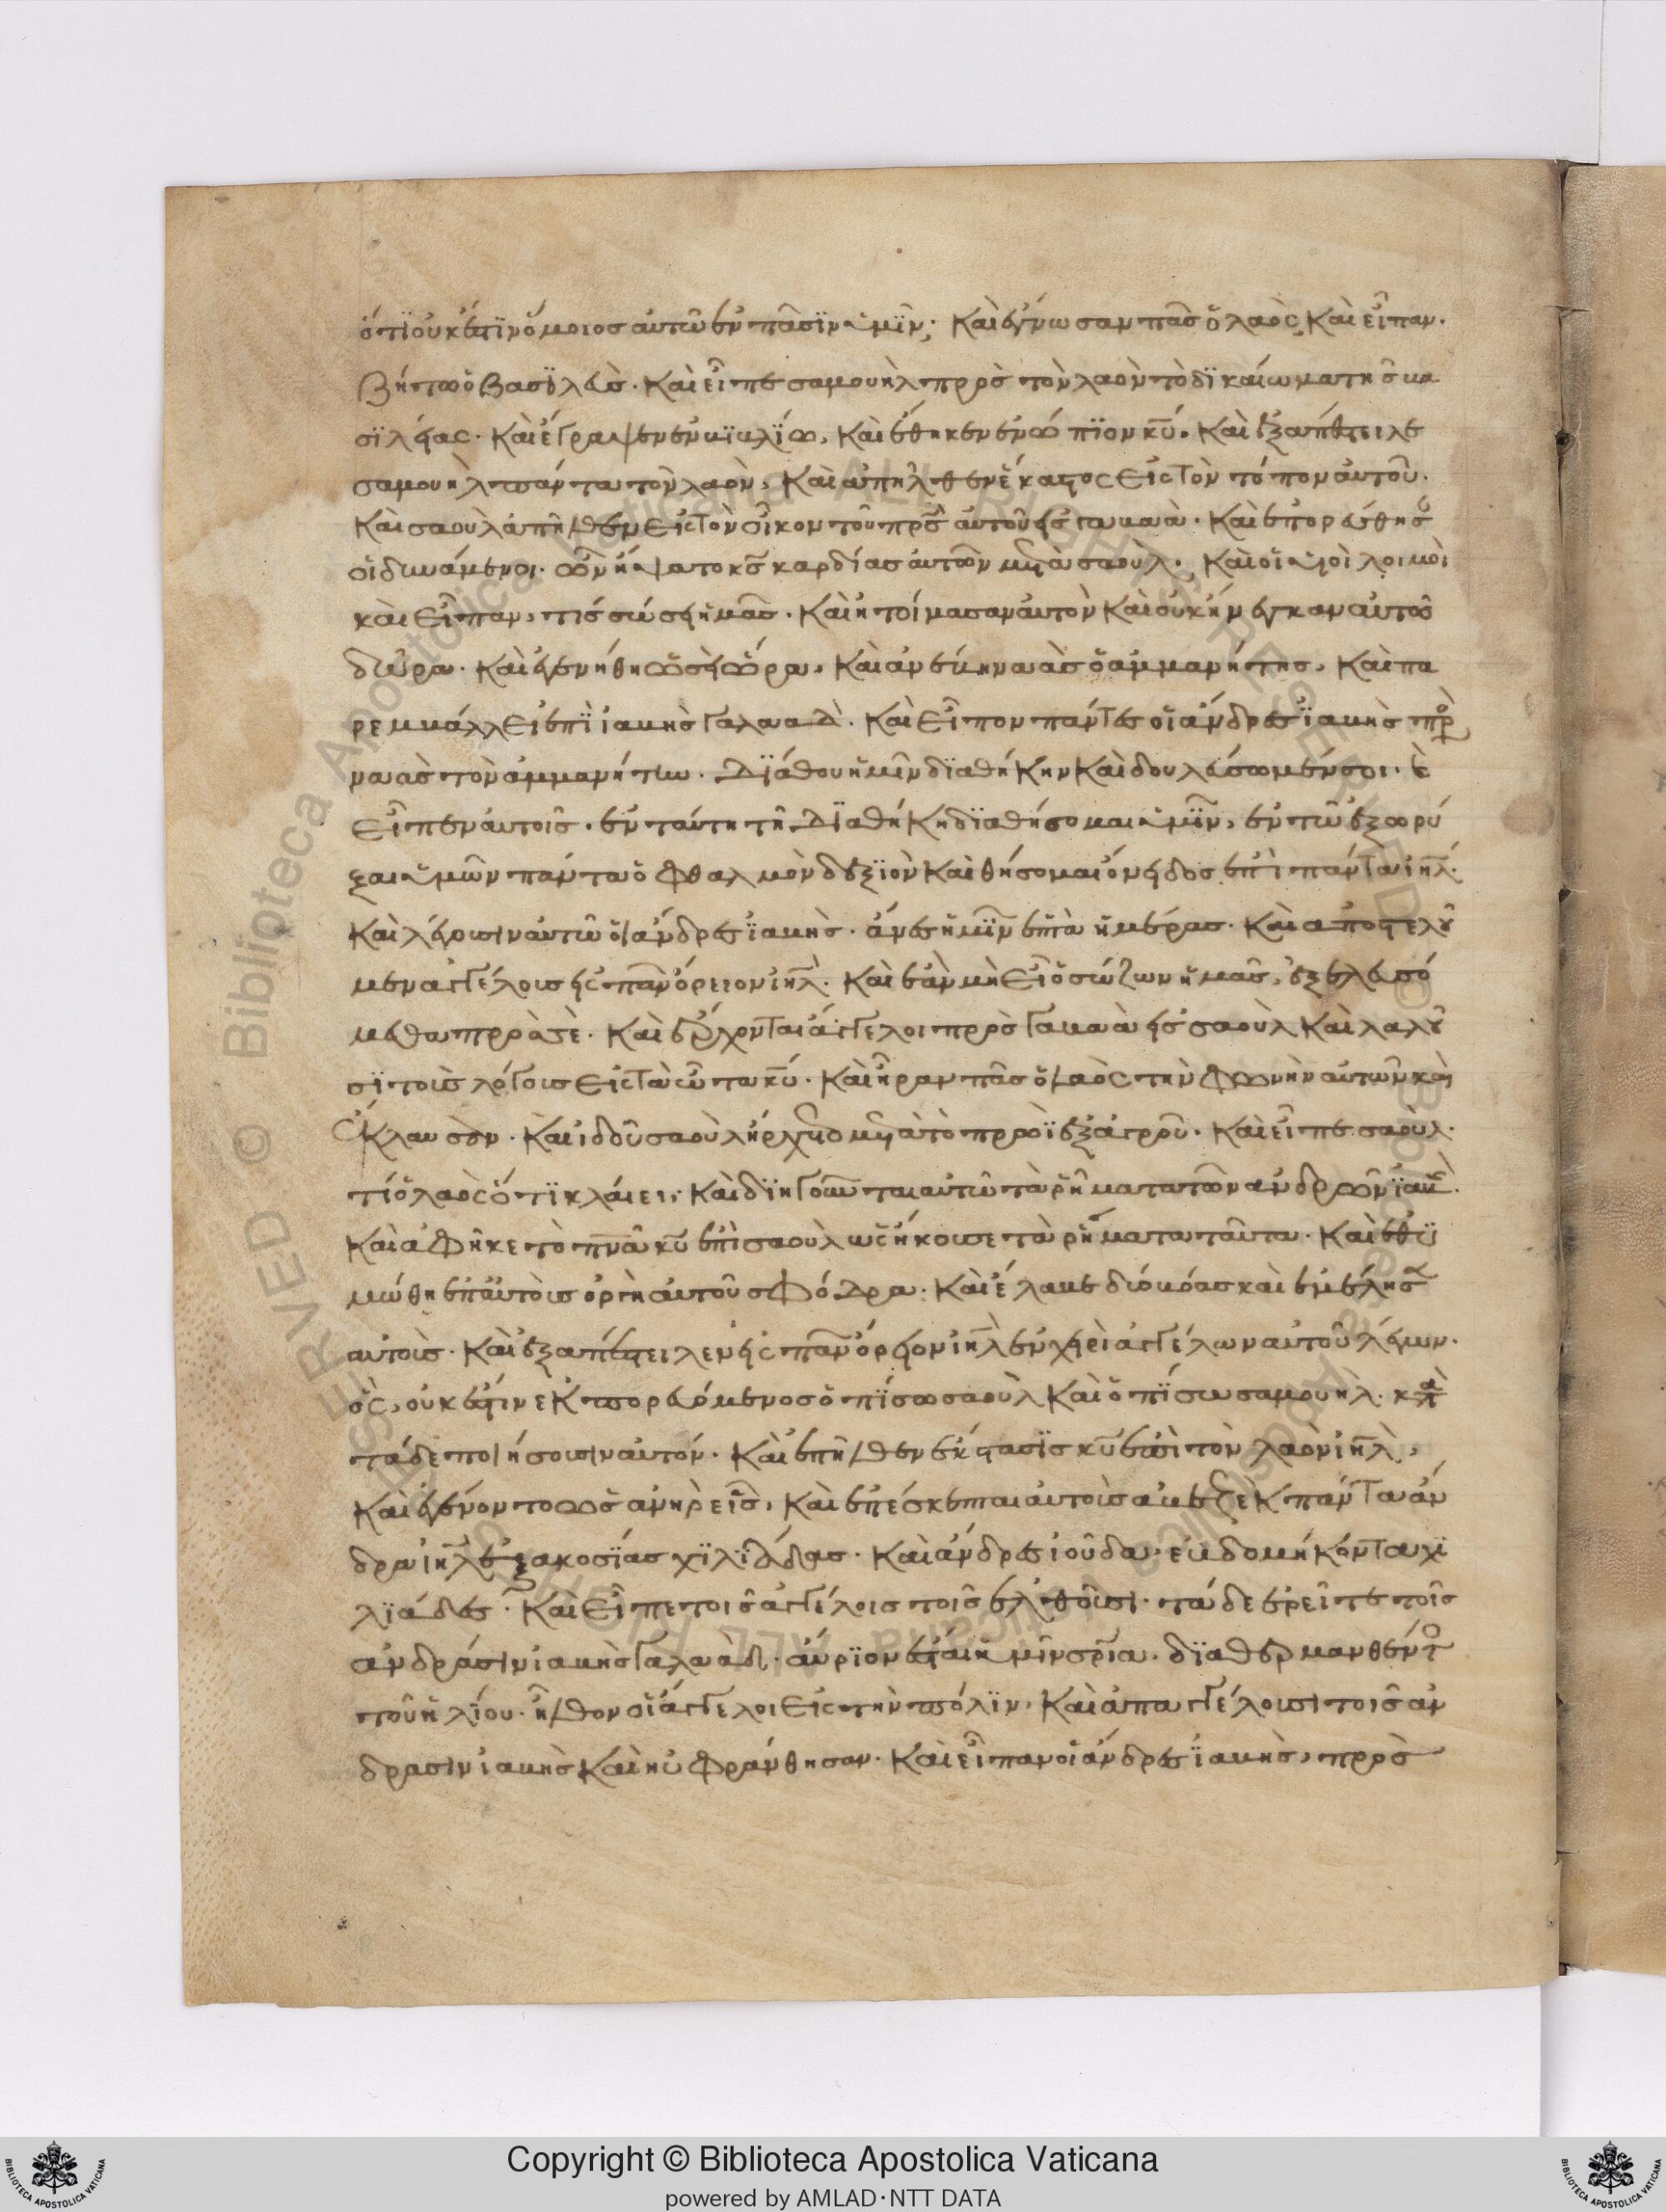 ὅτι οὐκ ἔστιν ὅμοιος αὐτῶ ἐν πᾶσιν ὑμῖν; Καὶ ἔγνωσαν πᾶς ὁ λαὸς καὶ εἶπαν·
ζήτω ὁ βασιλεύς· Καὶ εἶπε σαμουὴλ πρὸς τὸν λαὸν τὸ δικαίωμα τῆς βα
σιλείας· Καὶ ἔγραψεν ἐν βιβλίω, Καὶ ἔθηκεν ἐνώπιον κυ̅· Καὶ ἐξαπέστειλε
σαμουὴλ πάντα τὸν λαὸν, Καὶ ἀπῆλθεν ἕκαστος εἰς τὸν τόπον αὐτοῦ·
Καὶ σαοὺλ ἀπῆλθεν εἰς τὸν οἶκον τοῦ πρς̅ αὐτοῦ εἰς γαβαά· Καὶ ἐπορεύθησ
οἱ δυνάμενοι· ὧν ἥψατο κς̅ καρδίας αὐτῶν μετὰ σαούλ· Καὶ οἱ υἱοὶ λοιμοὶ
καὶ εἶπαν, τίς σώσει ἡμᾶς· Καὶ ἠτοίμασαν αὐτὸν Καὶ οὐκ ἤνεγκαν αὐτῶ
δῶρα· Καὶ ἐγενήθη ὡσεὶ ὥρα, Καὶ ἀνέβη ναὰς ὁ ἀμμανήτης, Καὶ πα
ρεμβάλλει ἐπὶ ἰαβὴς γαλαάδ· Καὶ εἶπον πάντες οἱ ἄνδρες ἰαβὴς πρ
ναὰς τὸν ἀμμανήτην· Διάθου ἡμῖν διαθήκην Καὶ δουλεύσωμέν σοι· Κ
εἶπεν αὐτοῖς· ἐν ταύτη τῆ Διαθήκη διαθήσομαι ὑμῖν, ἐν τῶ ἐξορύ
ξαι ὑμῶν πάντα ὀφθαλμὸν δεξιὸν Καὶ θήσομαι ὄνειδος ἐπὶ πάντα ιηλ̅·
Καὶ λέγουσιν αὐτῶ οἱ ἄνδρες ἰαβὴς· ἄνες ἡμῖν ἑπτὰ ἡμέρας· Καὶ ἀποστελοῦ
μεν ἀγγέλους εἰς πᾶν ὅριον ιηλ̅· Καὶ ἐὰν μὴ εἶ ὁ σώζων ἡμᾶς, ἐξελευσό
μεθα πρὸς σὲ· Καὶ ἔρχονται ἄγγελοι πρὸς γαβαὰ εἰς σαοὺλ Καὶ λαλοῦ
σι τοὺς λόγους εἰς τὰ ὦτα κυ̅· Καὶ ἦραν πᾶς ὁ λαὸς τὴν φωνὴν αὐτῶν καὶ
ἔκλαυσαν· Καὶ ἰδοῦ σαοὺλ ἤρχετο μετὰ τὸ πρωῒ ἐξ ἀγροῦ· Καὶ εἶπε σαούλ·
τί ὁ λαὸς ὅτι κλαίει; Καὶ διηγοῦνται αὐτῶ τὰ ῥήματα τῶν ἀνδρῶν ἰαβ
Καὶ ἀφῆκε τὸ πνα̅ κυ̅ ἐπὶ σαοὺλ ὡς ἤκουσε τὰ ῥήματα ταῦτα· Καὶ ἐθυ
μώθη ἐπ' αὐτοὺς ὀργὴ αὐτοῦ σφόδρα· Καὶ ἔλαβε δύο βόας καὶ ἐμέλησ
αὐτοὺς· Καὶ ἐξαπέστειλεν εἰς πᾶν ὅρειον ιηλ̅ ἐν χειρὶ ἀγγέλων αὐτοῦ λέγων·
ὃς οὐκ ἔστιν ἐκπορευόμενος ὀπίσω σαοὺλ Καὶ ὀπίσω σαμουὴλ· κατ
τάδε ποιήσουσιν αὐτόν· Καὶ ἐπῆλθεν ἔκστασις κυ̅ ἐπὶ τὸν λαὸν ιηλ̅,
Καὶ ἐγένοντο ὡς ἀνὴρ εἷς, Καὶ ἐπέσκεπται αὐτοὺς ἀβεζὲκ πάντα ἄν
δρα ιηλ̅ ἑξακοσίας χιλιάδας· Καὶ ἄνδρες ἰούδα· ἑβδομήκοντα χι
λιάδες· Καὶ εἶπε τοῖς ἀγγέλοις τοῖς ἐλθοῦσι· τάδε ἐρεῖτε τοῖς
ἀνδράσιν ἰαβὴς γαλαὰδ· αὔριον ἔσται ἡμῖν σρία· διαθερμανθέντο
τοῦ ἡλίου· ἦλθον οἱ ἄγγελοι εἰς τὴν πόλιν, Καὶ ἀπαγγέλουσι τοῖς ἀν
δράσιν ἰαβὴς Καὶ ηὐφράνθησαν· Καὶ εἶπαν οἱ ἄνδρες ἰαβὴς, πρὸς
Copyright © Biblioteca Apostolica Vaticana
powered by AMLAD·NTT DATA